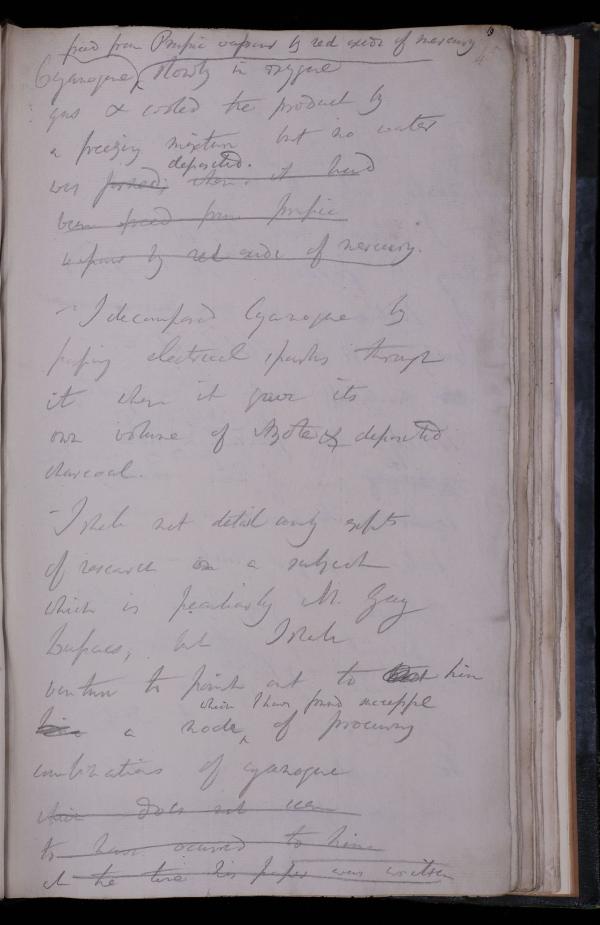 freed from Prussic vapour by red oxide of mercury
Cyanogene, slowly in oxygene
gas & cooled the product by
a freezing mixture but no water
deposited.
was formed; when it had
been freed from prussic
vapour by red oxide of mercury.
- I decomposed Cyanogene by
passing electrical sparks through
it when it gave its
own volume of Azote & deposited
charcoal.
- I shall not detail any expts
of research on a subject
which is peculiarly M. Gay
Lussacs, but I shall
venture to point out to him
which I have found successful
a mode of procuring
combinations of cyanogene
which does not seem
to have occurred to him
at the time his paper was written